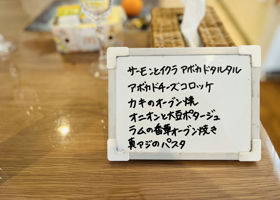 サーモンとイクラ アボカドタルタル
アボカドチーズコロッケ
カキのオーブン焼
オニオンと大豆ポタージュ
ラムの香草オーブン焼き
真アジのパスタ